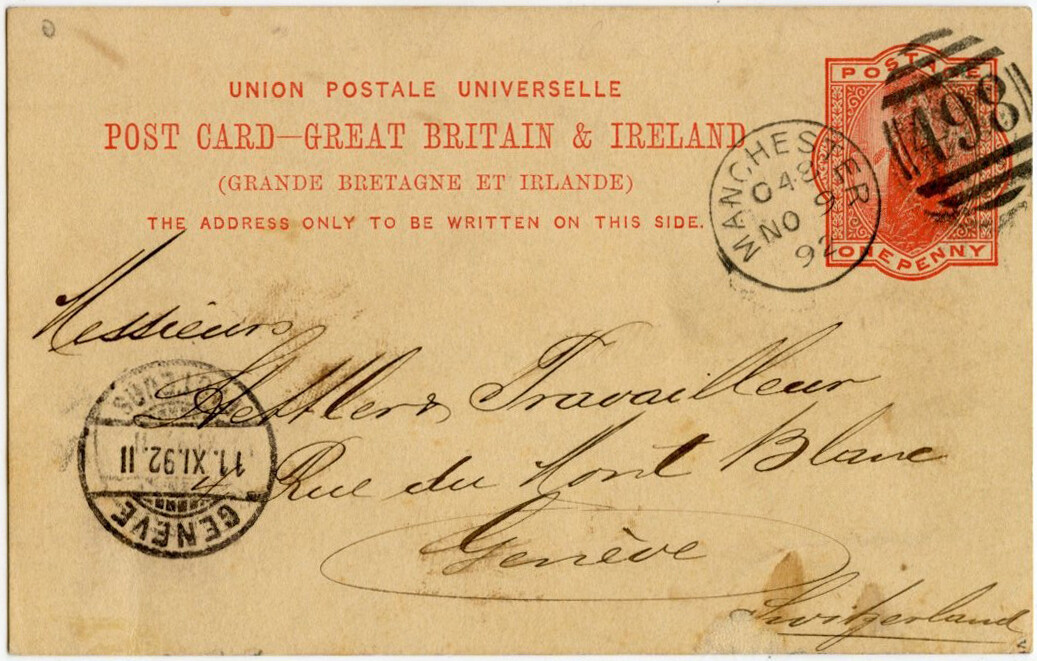 UNION POSTALE UNIVERSELLE
POST CARD—GREAT BRITAIN & IRELAND
(GRANDE BRETAGNE ET IRLANDE)
THE ADDRESS ONLY TO BE WRITTEN ON THIS SIDE.
POSTAGE
ONE PENNY
498
MANCHESTER
NO 9
92
Messieurs
Travailleur
4 Rue du Mont Blanc
Genève
Switzerland
11.XI.92.11
GENÈVE